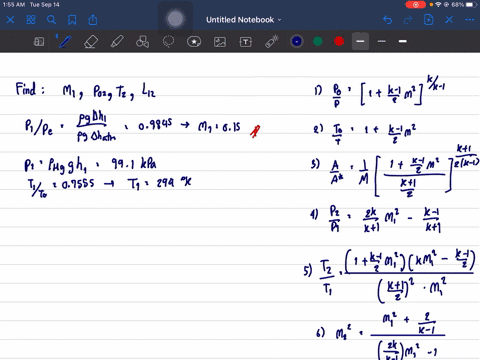 1:55 AM Tue Sep 14
68%
Untitled Notebook
Find: M₁, P₀₂, T₂, L₁₂
P₁/P₀ = ρgΔh₁ / ρgΔhatm = 0.9845 → M₁ = 0.15
P₁ = ρHg g h₁ = 99.1 kPa
T₁/T₀ = 0.9955 → T₁ = 294 °K
1) P₀/P = [1 + k-1/2 M²]^k/k-1
2) T₀/T = 1 + k-1/2 M²
3) A/A* = 1/M [1 + k-1/2 M² / k+1/2]^k+1/2(k-1)
4) P₂/P₁ = 2k/k+1 M₁² - k-1/k+1
5) T₂/T₁ = (1 + k-1/2 M₁²)(kM₁² - k-1/2) / (k+1/2)² · M₁²
6) M₂² = M₁² + 2/k-1 / (2k/k-1)M₁² - 1